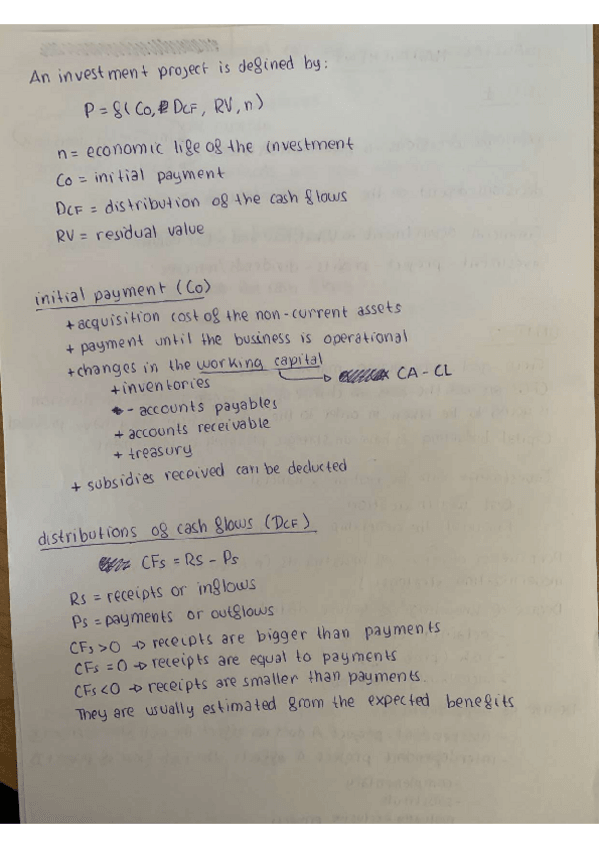 An investment project is defined by:
P = f (Co, DCF, RV, n)
n = economic life of the investment
Co = initial payment
DCF = distribution of the cash flows
RV = residual value
initial payment (Co)
+ acquisition cost of the non-current assets
+ payment until the business is operational
+ changes in the working capital
CA - CL
+ inventories
- accounts payables
+ accounts receivable
+ treasury
+ subsidies received can be deducted
distributions of cash flows (DCF)
CFs = Rs - Ps
Rs = receipts or inflows
Ps = payments or outflows
CFs > 0 → receipts are bigger than payments
CFs = 0 → receipts are equal to payments
CFs < 0 → receipts are smaller than payments
They are usually estimated from the expected benefits